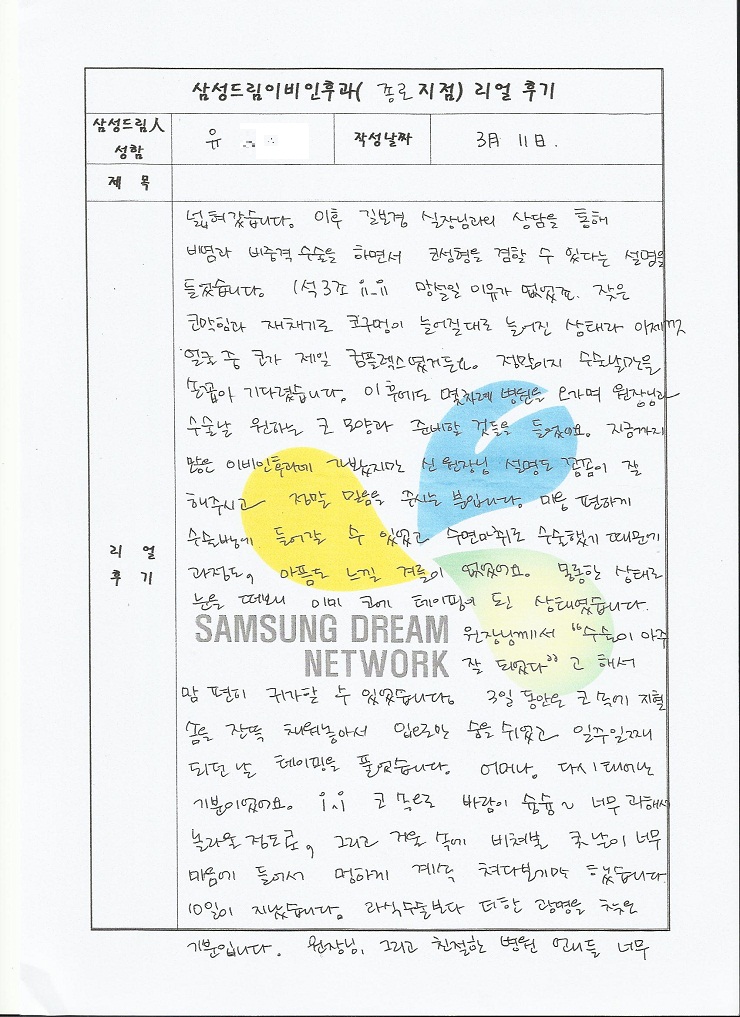 삼성드림이비인후과( 종로 지점) 리얼 후기
삼성드림人
성함
유
작성날짜
3月 11日.
제 목
리 얼
후 기
넓혀갔습니다. 이후 길보경 실장님과의 상담을 통해
비염과 비중격 수술을 하면서 코성형을 겸할 수 있다는 설명을
들었습니다. 1석 3조 ㅠ_ㅠ 망설일 이유가 없었죠. 잦은
코막힘과 재채기로 콧구멍이 늘어질대로 늘어진 상태라
얼굴 중 코가 제일 컴플렉스였거든요. 정말이지 수술날만을
손꼽아 기다렸습니다. 이후에도 몇차례 병원을 오가며 원장님과
수술날 원하는 코 모양과 준비할 것들을 들었어요. 지금까지
많은 이비인후과에 가봤지만 신 원장님 설명도 꼼꼼이 잘
해주시고 정말 믿음을 주시는 분입니다. 마음 편하게
수술방에 들어갈 수 있었고 수면마취로 수술했기 때문에
과정도, 아픔도 느낄 겨를이 없었어요. 몽롱한 상태로
눈을 떠보니 이미 코에 테이핑이 된 상태였습니다.
SAMSUNG DREAM
NETWORK
원장님께서 "수술이 아주
잘 되었다" 고 해서
맘 편히 귀가할 수 있었습니다. 3일 동안은 코 속에 지혈
솜을 잔뜩 채워놓아서 입으로만 숨을 쉬었고 일주일째
되던 날 테이핑을 풀었습니다. 어머나, 다시 태어난
기분이었어요. ㅠ.ㅠ 코 속으로 바람이 슝슝~ 너무 과해서
놀라울 정도로, 그리고 거울 속에 비쳐본 콧날이 너무
마음에 들어서 멍하게 계속 쳐다보기만 했습니다.
10일이 지났습니다. 라식수술보다 더한 광명을 찾은
기분입니다. 원장님, 그리고 친절한 병원 언니들 너무